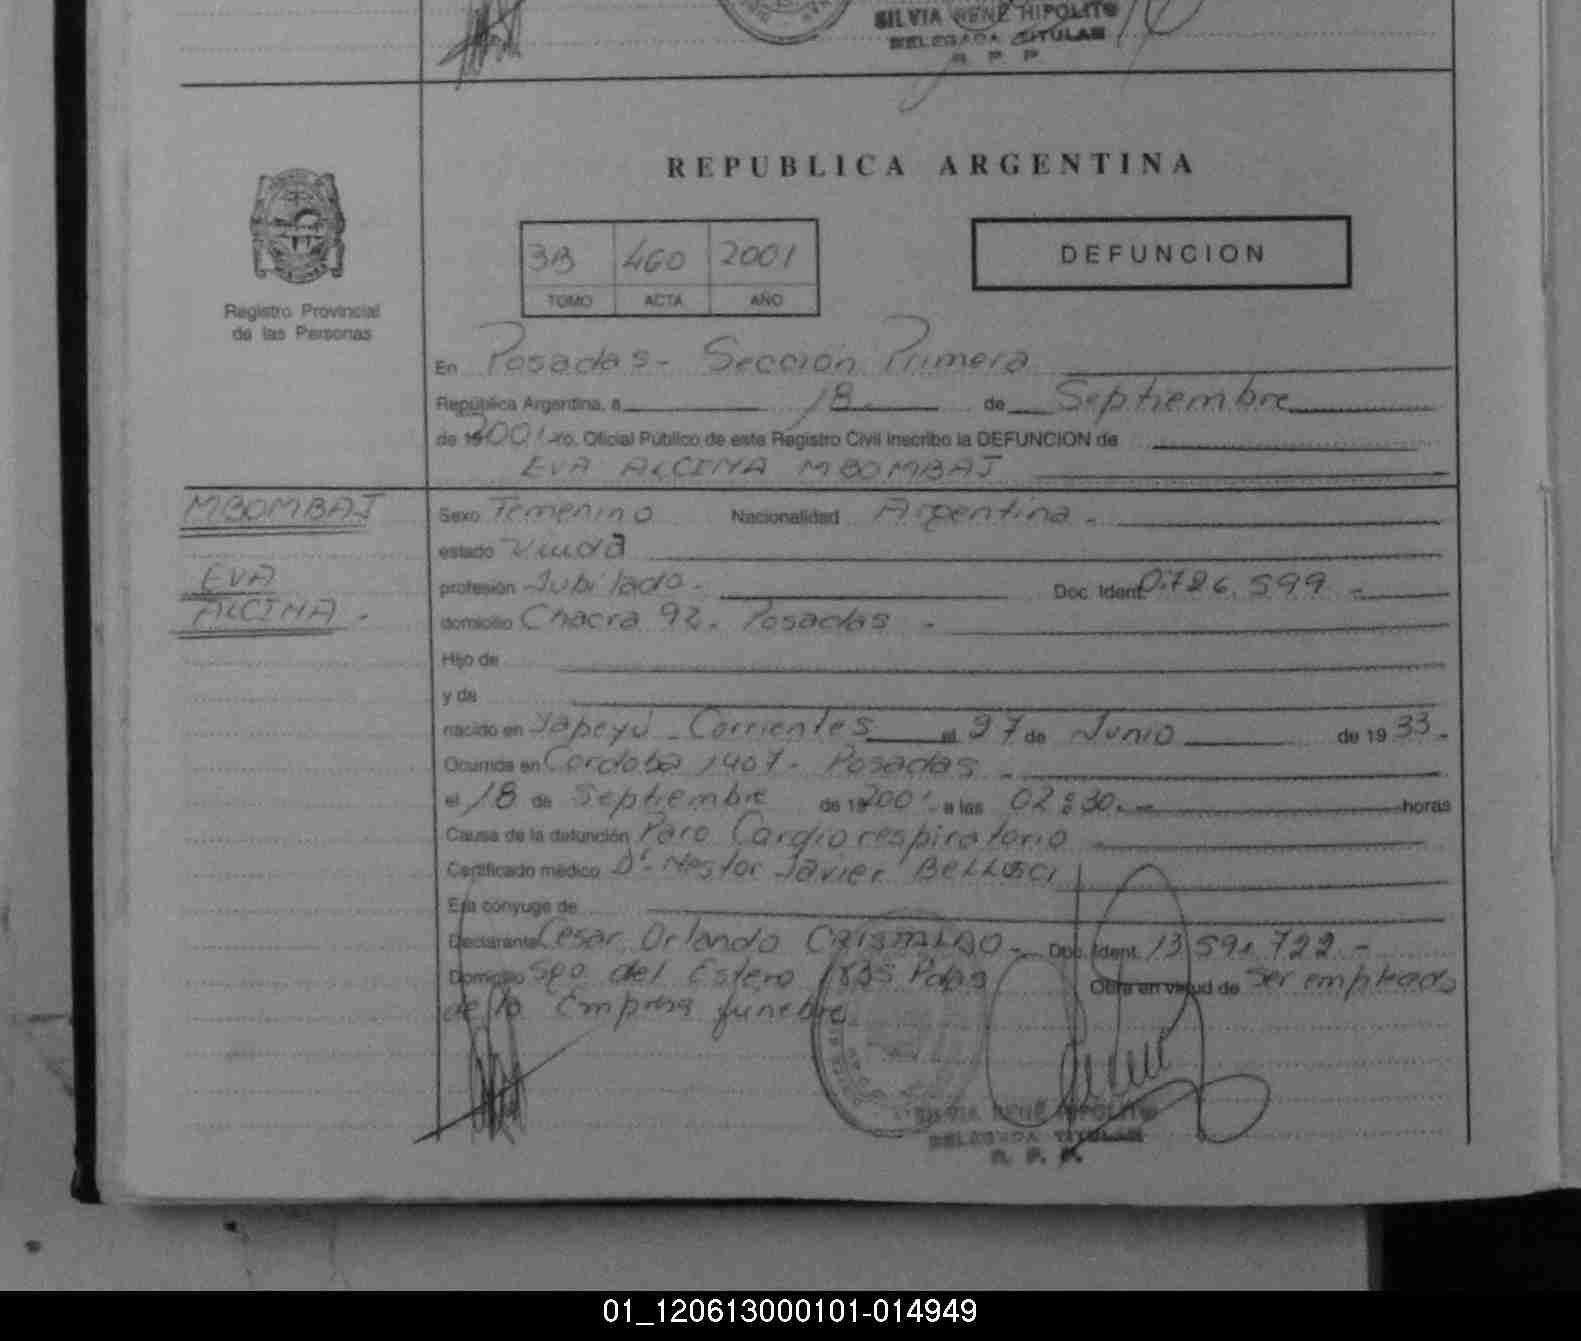 SILVIA RENE HIPOLITO
DELEGADA TITULAR
R. P. P.
REPUBLICA ARGENTINA
3B 460 2001
TOMO ACTA AÑO
DEFUNCION
Registro Provincial
de las Personas
En Posadas - Sección Primera
República Argentina, a 18 de Septiembre
de 19 2001 yo. Oficial Público de este Registro Civil inscribo la DEFUNCION de
EVA ALCINA MBOMBAJ
MBOMBAJ
EVA
ALCINA -
Sexo Femenino Nacionalidad Argentina -
estado Viuda
profesión Jubilado - Doc. Ident. 0.726.599 -
domicilio Chacra 92. Posadas -
Hijo de
y de
nacido en Yapeyú - Corrientes el 27 de Junio de 19 33 -
Ocurrida en Cordoba 1407 - Posadas -
el 18 de Septiembre de 19 2001 a las 02:30 - horas
Causa de la defunción Paro Cardiorespiratorio
Certificado médico Dr. Nestor Javier BELLUSCI
Era cónyuge de
Declarante Cesar Orlando CRISTALDO - Doc. Ident. 13.591.722 -
Domicilio Sgo. del Estero 1835 Pdas Obra en virtud de ser empleado
de la Empresa funebre.
SILVIA RENE HIPOLITO
DELEGADA TITULAR
R. P. P.
01_120613000101-014949